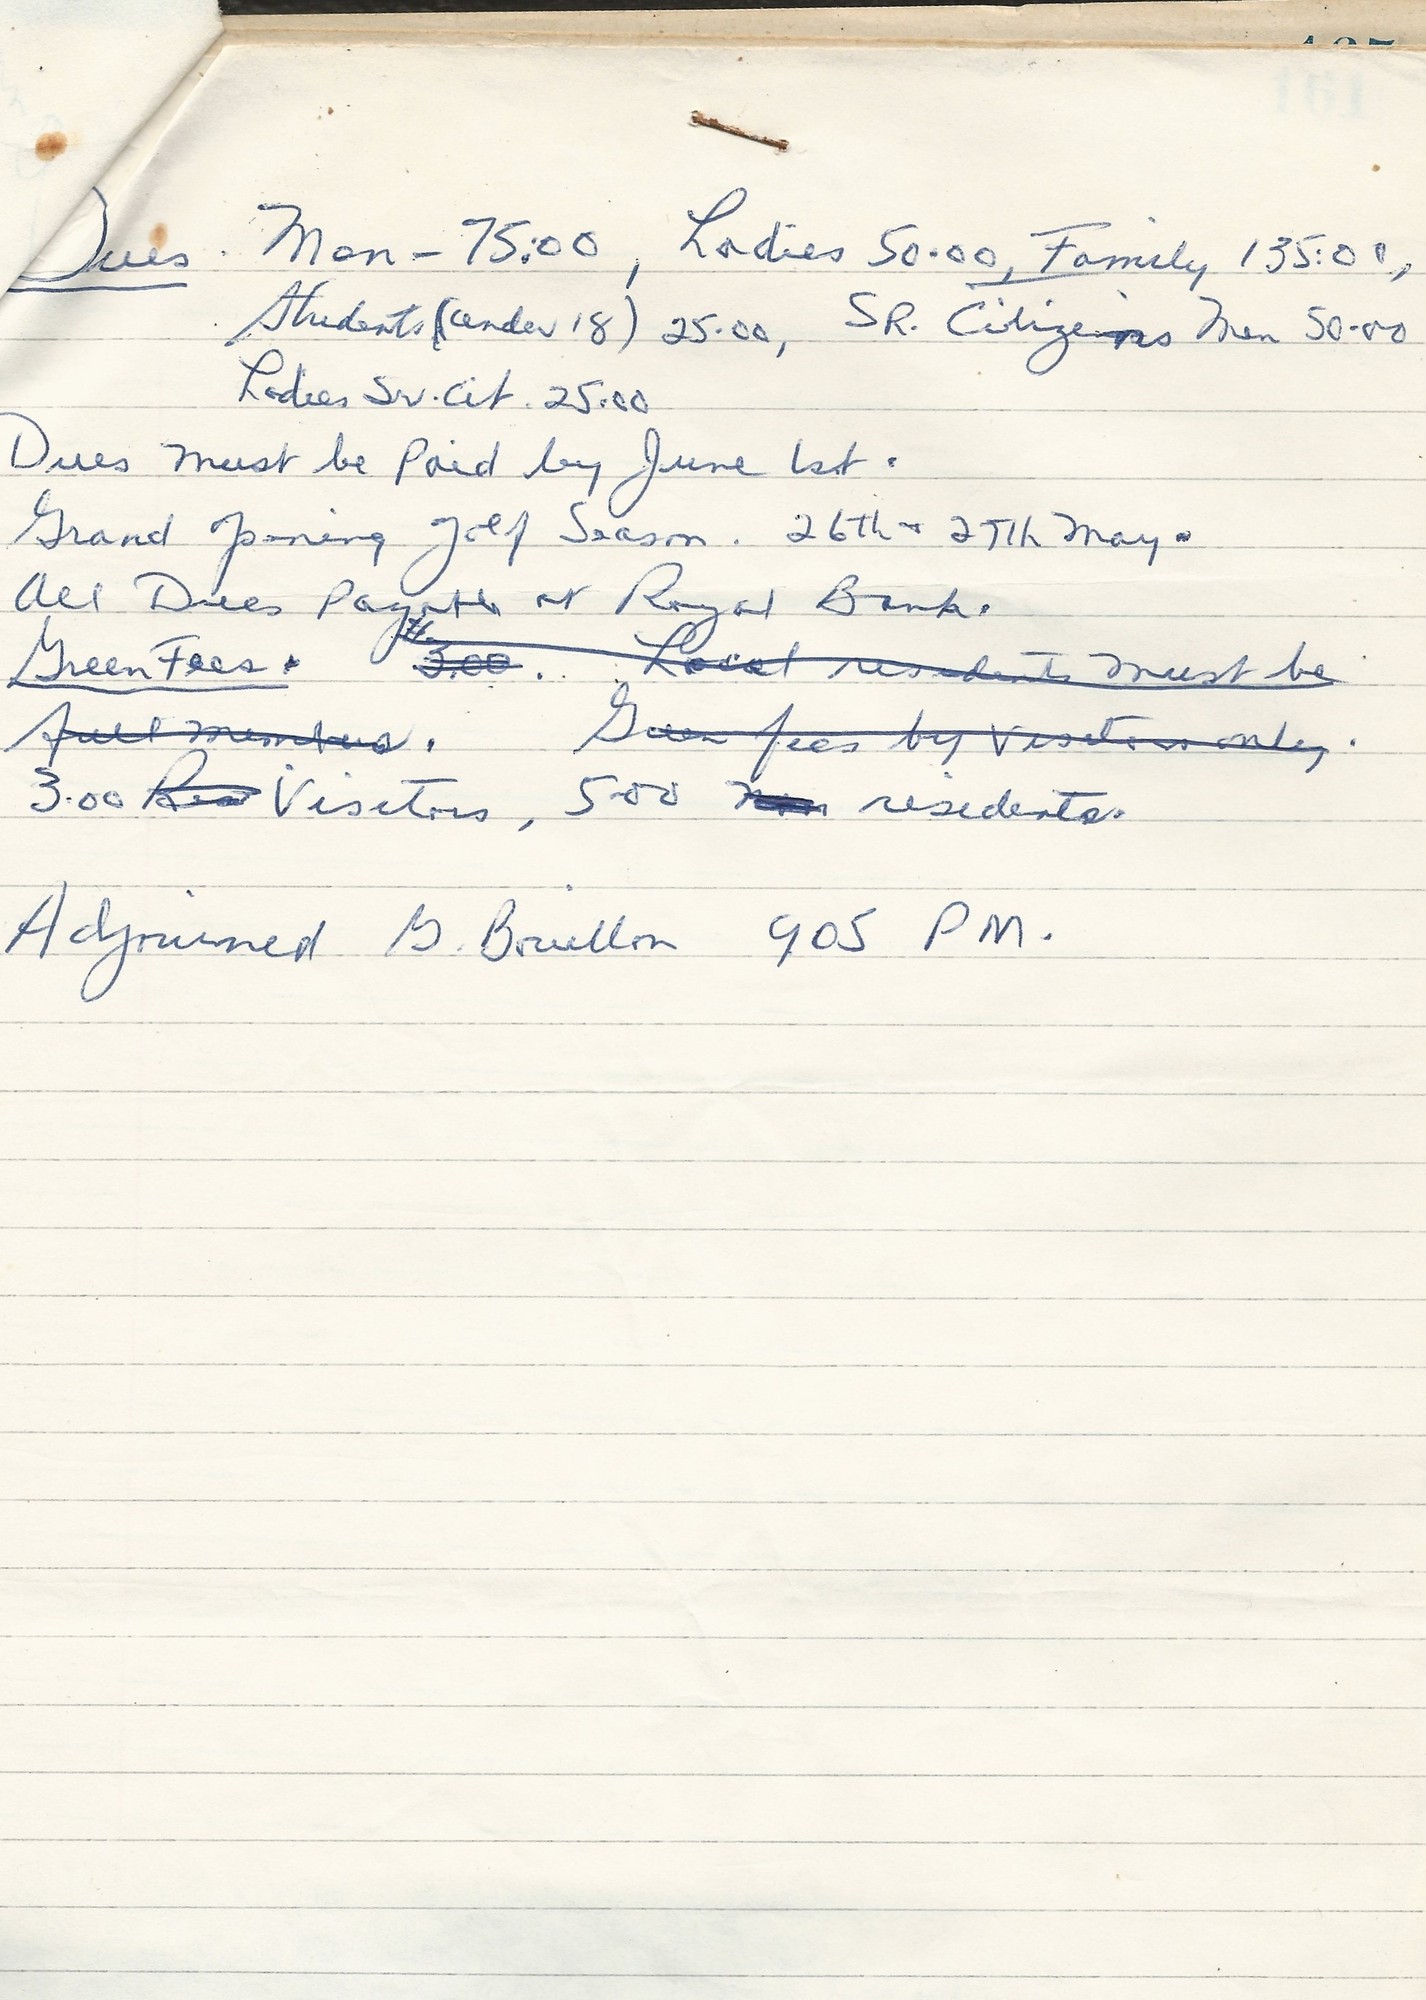 Dues. Men - 75:00, Ladies 50.00, Family 135:00,
Students (under 18) 25.00, SR. Citizens Men 50.00
Ladies Sr. Cit. 25.00
Dues must be Paid by June 1st.
Grand opening golf Season. 26th + 27th May.
All Dues Payable at Royal Bank.
Green Fees. 3.00. Local residents must be
full members. Green fees by Visitors only.
3.00 Res Visitors, 5.00 Non residents.
Adjourned G. Bouillon 905 PM.